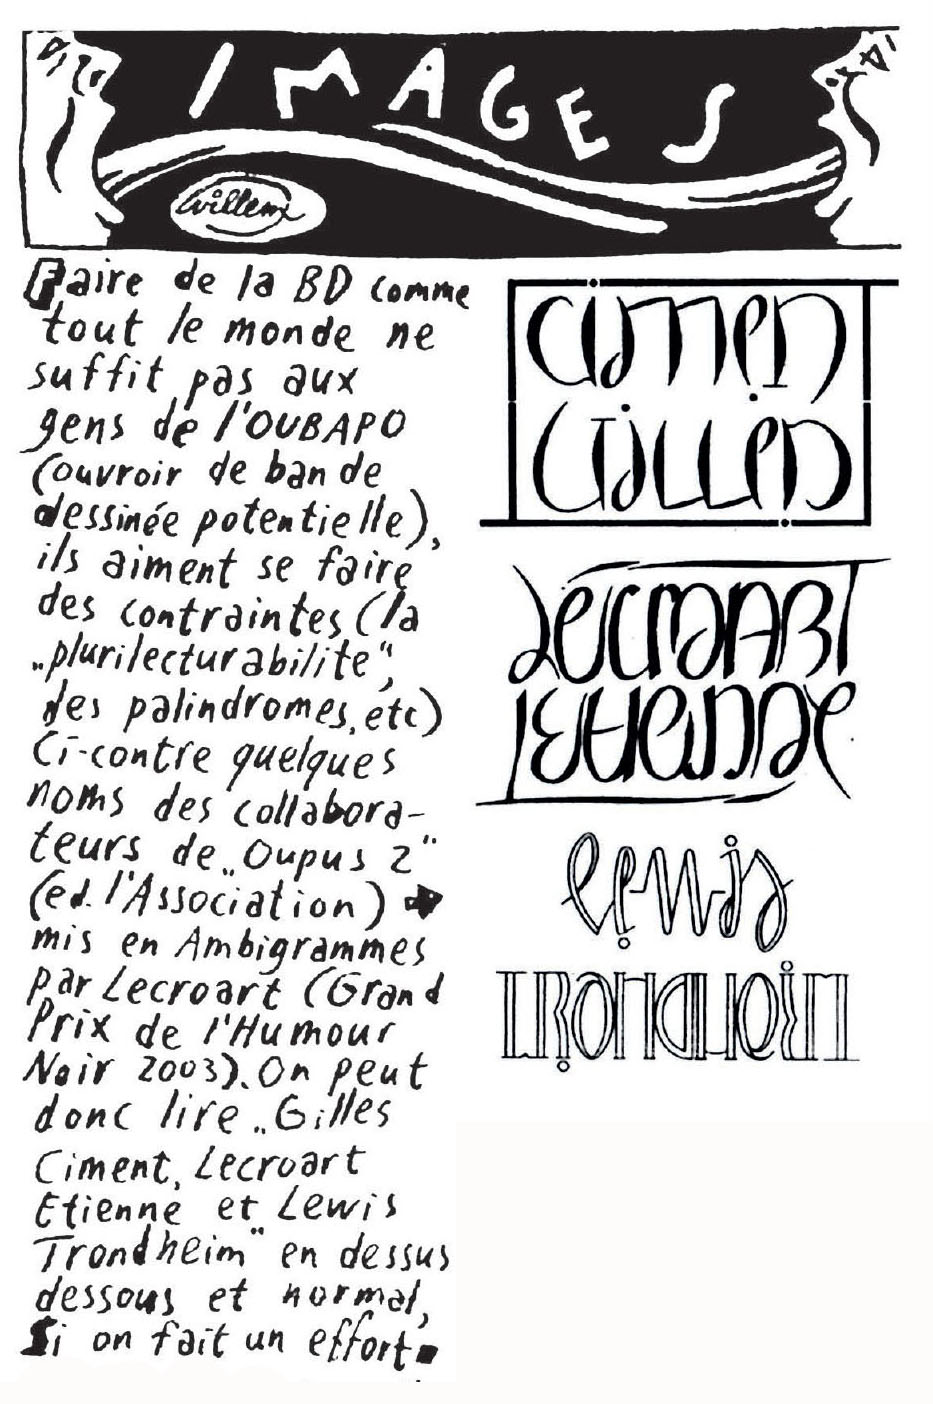 IMAGES
Willem
Faire de la BD comme
tout le monde ne
suffit pas aux
gens de l'OUBAPO
(ouvroir de bande
dessinée potentielle),
ils aiment se faire
des contraintes (la
„plurilecturabilite“,
des palindromes, etc)
Ci-contre quelques
noms des collabora-
teurs de „Oupus 2“
(ed. l'Association)
mis en Ambigrammes
par Lecroart (Grand
Prix de l'Humour
Noir 2003). On peut
donc lire „Gilles
Ciment, Lecroart
Etienne et Lewis
Trondheim“ en dessus
dessous et normal,
Si on fait un effort.
Lecroart
Etienne
Lewis
TRONDHEIM